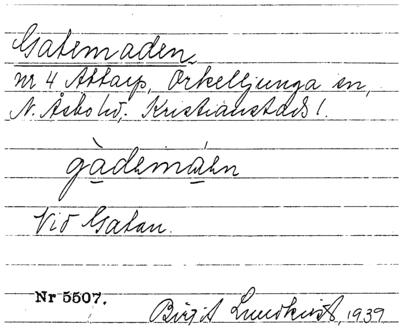 Gatemaden
nr 4 Attarp, Örkelljunga sn,
N. Åsbo hd, Kristianstads l.
gàdemáen
Vid Gatan.
Nr 5507.
Birgit Lundkvist, 1939